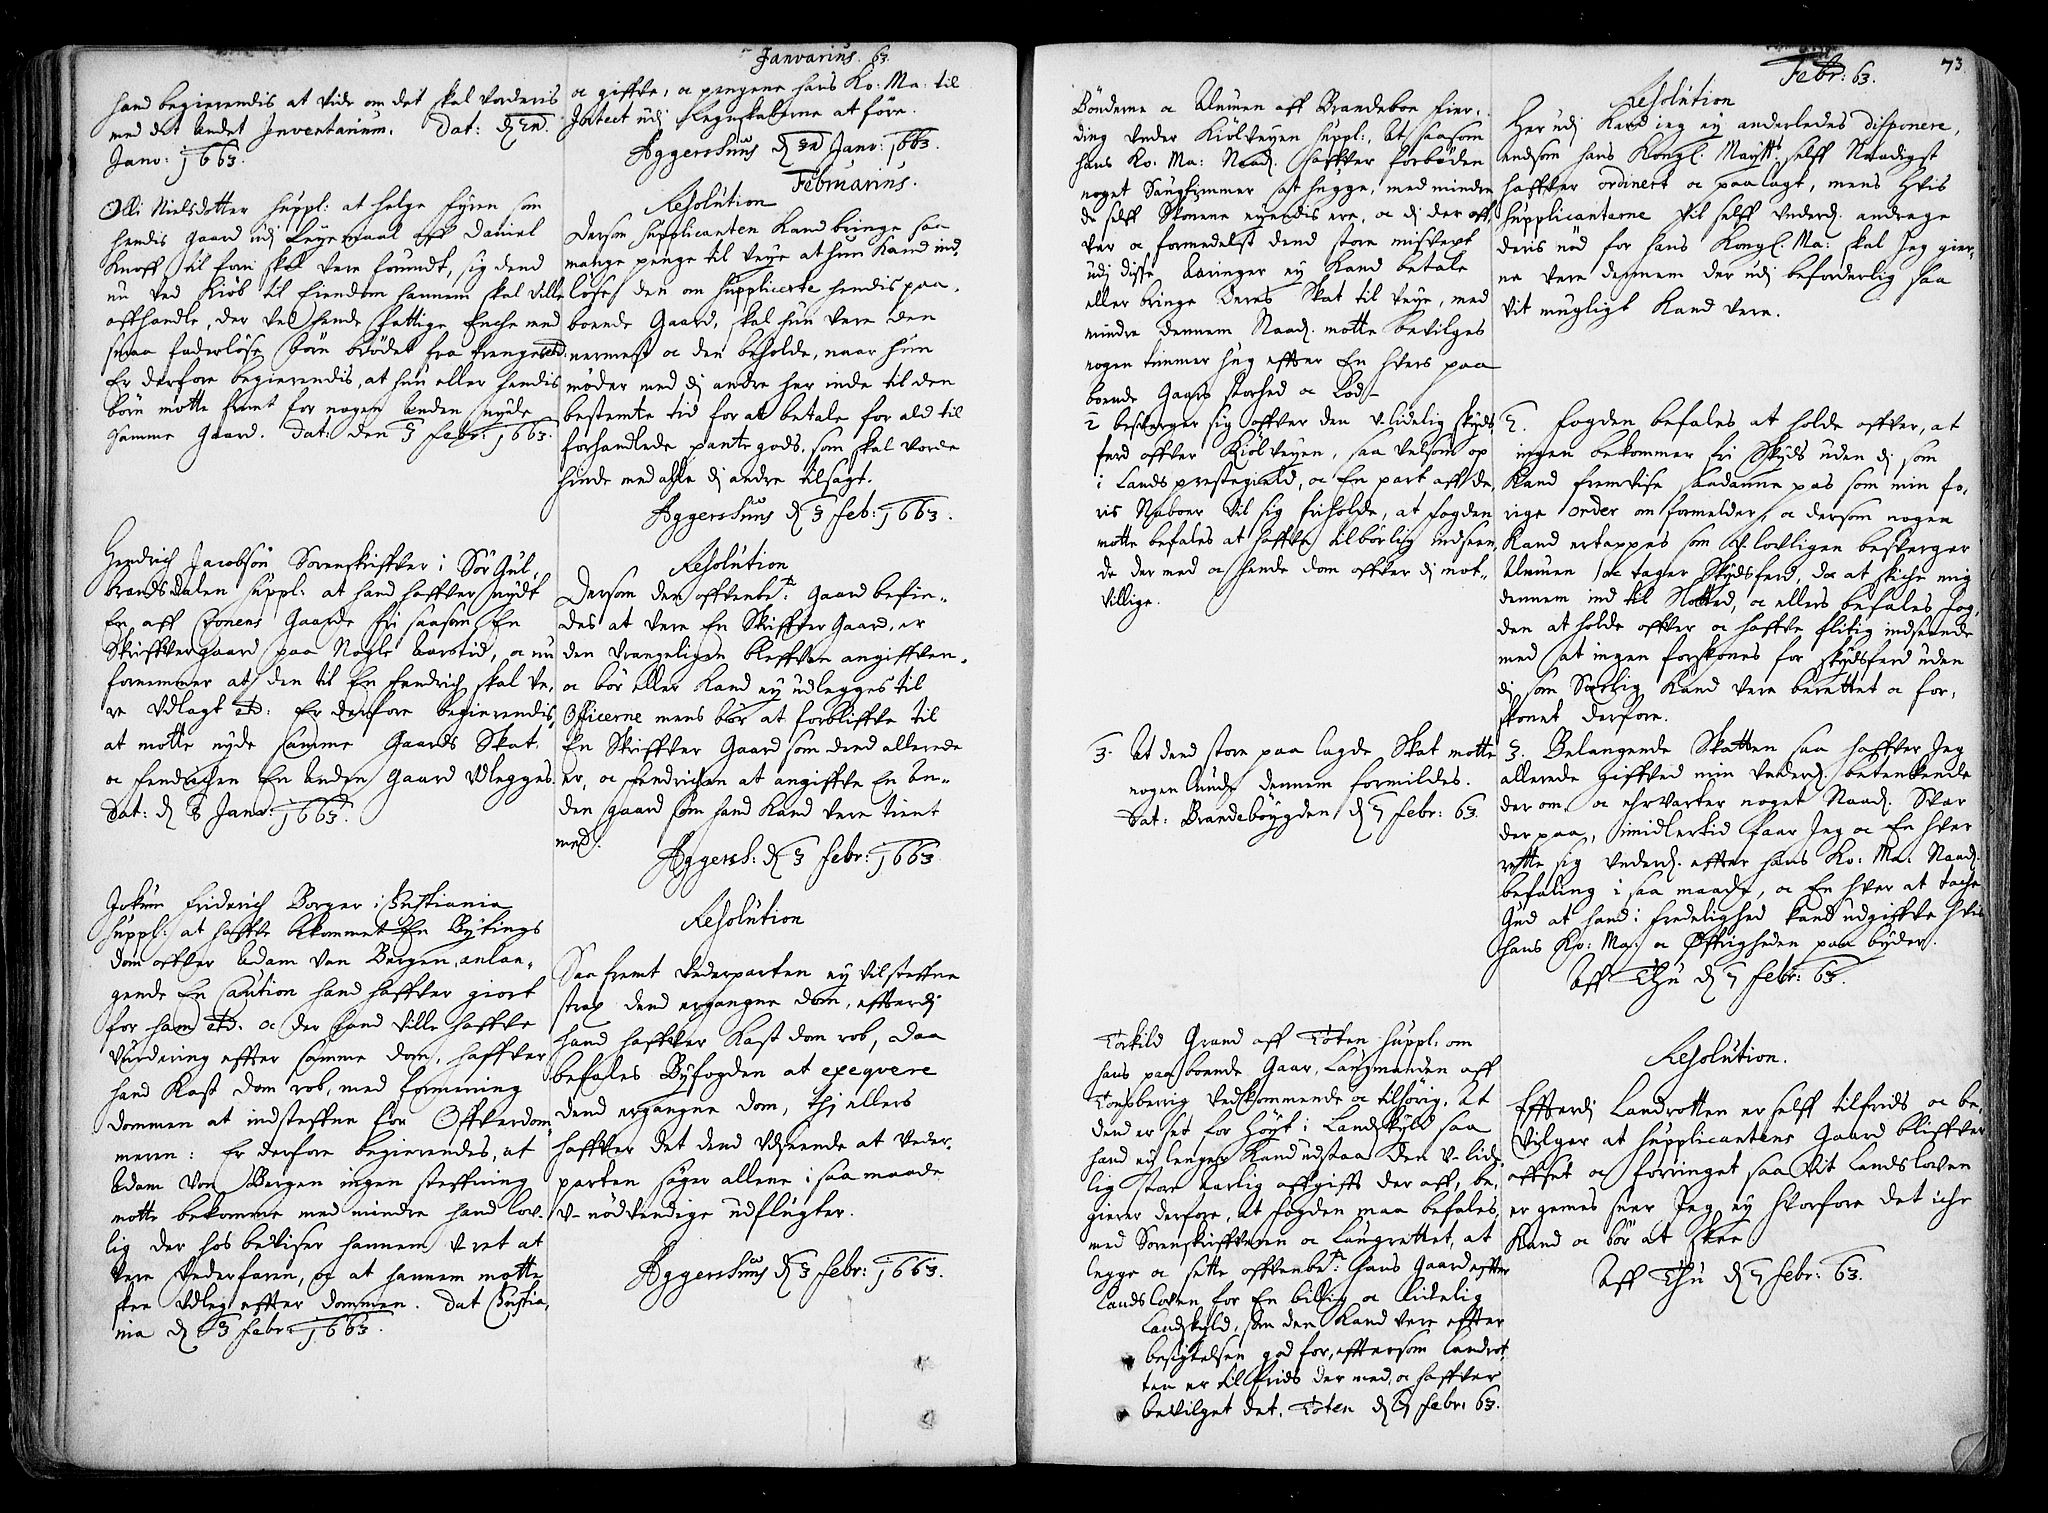 Januarius. 63.
hand begierendis at vide om det skal vorderis
med det andet Inventarium. Dat:
Janv: 1663.
Olli Nielsdotter suppl: at helge fyren som
hendis gaard udj leyemaal aff Daniel
Knoff til forn skal vere forundt, sig dend
nu ved kiöb til Eiendom hannem skal ville
affhandle, der ved hende fattige Enche med
smaa faderlöse börn brödet fra trenges etc.
Er derfore begierendis, at hun eller hendis
börn motte fremt for nogen anden nyde
samme Gaard. Dat: den 3 febr: 1663.
Hendrich Jacobsön Sorenskriffver i Sör Gul-
brandsdalen suppl: at hand haffver nydt
En aff Cronens Gaarde fri saasom En
Skriffvergaard paa Nogle aarstid, a nu
fornemmer at den til En fendrich skal ve-
re udlagt etc: Er derfore begierendis,
at motte nyde samme Gaards Skat.
a fendrichen En anden Gaard udlegges.
Dat: d 8 Janv: 1663.
Jokum Friderich Borger i Christiania
suppl: at haffve bekommet En Bytings
dom offver Adam Von Bergen, anlan-
gende En Caution hand haffver giort
for ham etc. a der hand ville haffve
Vurdering effter samme dom, haffver
hand kast dom rob, med formening
dommen at indsteffne for Offverdom-
meren: Er derfore begierendes, at
Adam Von Bergen ingen steffning
motte bekomme med mindre hand lov-
lig der hos beviser hannem v-ret at
vere vederfaren, og at hannem motte
skee Udleg effter dommen. Dat Christia-
nia d 3 febr: 1663.
a giffve, a pengene hans Ko: Ma: til
Indtect udj Regnskaberne at före.
Aggershuus d Janv: 1663.
Februarius.
Resolution
Dersom Supplicanten kand bringe saa
mange penge til veye at hun kand ind-
löse den om supplicerte hendis paa-
boende Gaard, skal hun vere den
nermest a den beholde, naar hun
möder med dj andre her inde til den
bestemte tid for at betale for ald til
forhandlede pantegods, som skal vorde
hinde med alle dj andre tilsagt.
Aggershuus d 3 Feb: 1663.
Resolution
Dersom den offvenbete: Gaard befin-
des at vere En Skriffver Gaard, er
den vrangeligen bleffven angiffven-
a bör eller kand ey udlegges til
Officerne mens bör at forbliffve til
En Skriffver Gaard som dend allerede
er, a fendrichen at angiffve En an-
den gaard som hand kand vere tient
med.
Aggersh: d 3 febr: 1663.
Resolution
Saa fremt Vederparten ey vil steffne
strax dend ergangne dom, effterdj
hand haffver kast dom rob, daa
befales Byfogden at exeqvere
dend ergangne dom, thj ellers
haffver det dend Udseende at Veder-
parten söger allene i saa maade
v-nödvendige udflugter.
Aggershuus d 3 febr: 1663.
Febr: 63.
73
Bönderne a Almuen aff Brandeboe fier-
ding under Kiölveyen suppl:, at saasom
hans Ko: Ma: Naad. haffver forböden
noget Saugtimmer at hugge, med mindre
de selff Skovene eyendis ere, a dj der off-
ver a formedelst dend store misvext
udj disse aaringer ey kand betale
eller bringe deres Skat til veye, med
mindre dennem Naad. motte bevilges
nogen timmer hug effter En hvers paa
boende Gaars storhed a Lod
2 besverger sig offver den v-lidelig skyds
ferd offver Kiölveyen, saa velsom op
i Lands prestegield, a En part aff de-
ris Naboer vil sig friholde, at fogden
motte befales at haffve tilbörlig indseen-
de der med a hende dom offver dj mot-
villige.
3. At dend store paa lagde Skat motte
nogenlunde dennem formildes.
Dat: Brandeböygden d 7 febr: 63.
Torkild Grand aff Toten suppl: om
hans paa boende Gaar, Laugmanden aff
Tonsberrig vedkommende a tilhörig, at
dend er set for höyt i Landskyld saa
hand ey lenger kand udstaa den v-lide-
lig store aarlig affgifft der aff, be-
gierer derfore, at fogden maa befales
med Sorenskriffveren a Laugrettet, at
legge a sette offvenbete: hans Gaard effter
Landsloven for En billig a lidelig
Landskyld, som den kand vere effter
besigtelsen god for, effter som Landrot-
ten er tilfrids der med, a haffver
bevilget det. Toten d 7 febr: 63.
Resolution
Her udj kand jeg ey anderledes disponere,
endsom hans Kongl: Maytt: selff Naadigst
haffver ordinert a paalagt, mens hvis
Supplicanterne vil selff underd. andrage
deris nöd for hans Kongl: Ma: skal Jeg gier-
ne vere dennem der udj beforderlig saa
vit mugligt kand vere.
2. Fogden befales at holde offver, at
ingen bekommer fri Skyds uden dj som
kand fremvise saadanne pas som min fo-
rige order om formelder, a dersom nogen
kand ertappes som v-lovligen besverger
Almuen a tager Skydsferd, da at skiche mig
dennem ind til Slotted, a ellers befales Fog-
den at holde offver a haffve flitig indseende
med at ingen forskones for skydsferd uden
dj som særlig kand vere berettet a for-
skont derfore.
3. Belangende Skatten saa haffver Jeg
allerede giffved min underd. betenkende
der om, a ehrvarter noget Naad. Svar
der paa, imidlertid faar Jeg a En hver
rette sig underd. effter hans Ko: Ma: Naad.
befaling i saa maade, a En hver at tache
Gud at hand i fredelighed kand udgiffve hvis
hans Ko: Ma: a Öffrigheden paa byder.
Aff Thu d 7 febr: 63.
Resolution.
Effterdj Landrotten er selff tilfrids a be-
vilger at Supplicantens Gaard bliffver
affset a forringet saa vit Landsloven
er gemes seer Jeg ey hvorfore det ichr
kand a bör at skee
Aff Thu d 7 febr: 63.